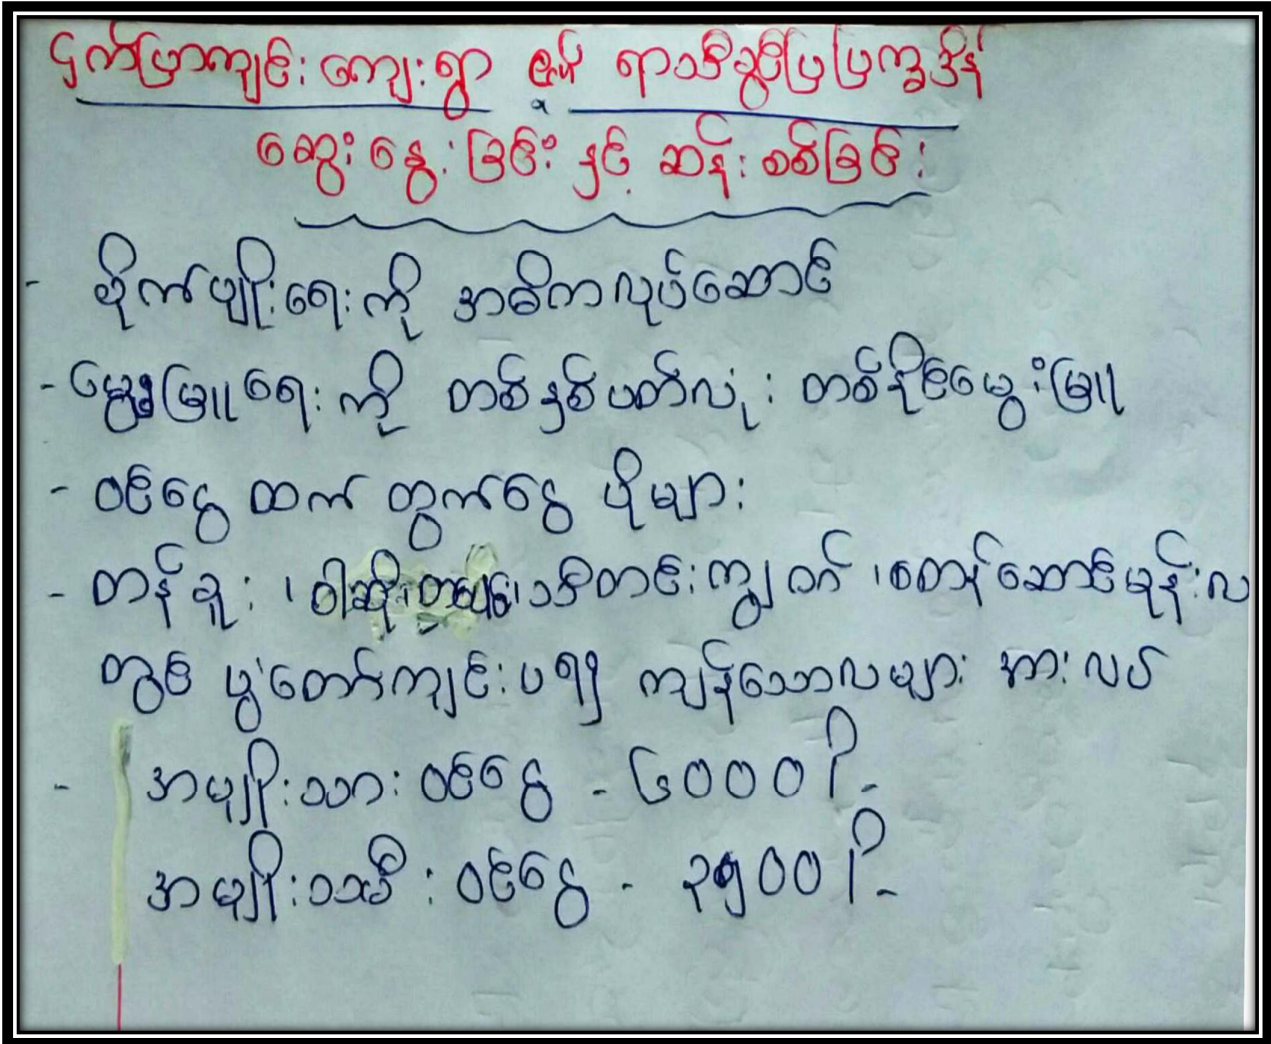 ငှက်ပြာကျင်းကျေးရွာ ဇုံ၏ ရာသီခွင်ပြပြက္ခဒိန်
ဆွေးနွေးခြင်းနှင့် ဆန်းစစ်ခြင်း
- စိုက်ပျိုးရေးကို အဓိကလုပ်ဆောင်
- မွေးမြူရေးကို တစ်နှစ်ပတ်လုံး တစ်နိုင်မွေးမြူ
- ဝင်ငွေထက် ထွက်ငွေ ပိုများ
- တန်ခူး၊ ဝါဆို၊ သီတင်းကျွတ်၊ တန်ဆောင်မုန်းလ
တွင် ပွဲတော်ကျင်းပ၍ ကျန်သောလများ အားလပ်
- အမျိုးသားဝင်ငွေ - ၆၀၀၀ိ/-
အမျိုးသမီးဝင်ငွေ - ၃၅၀၀ိ/-